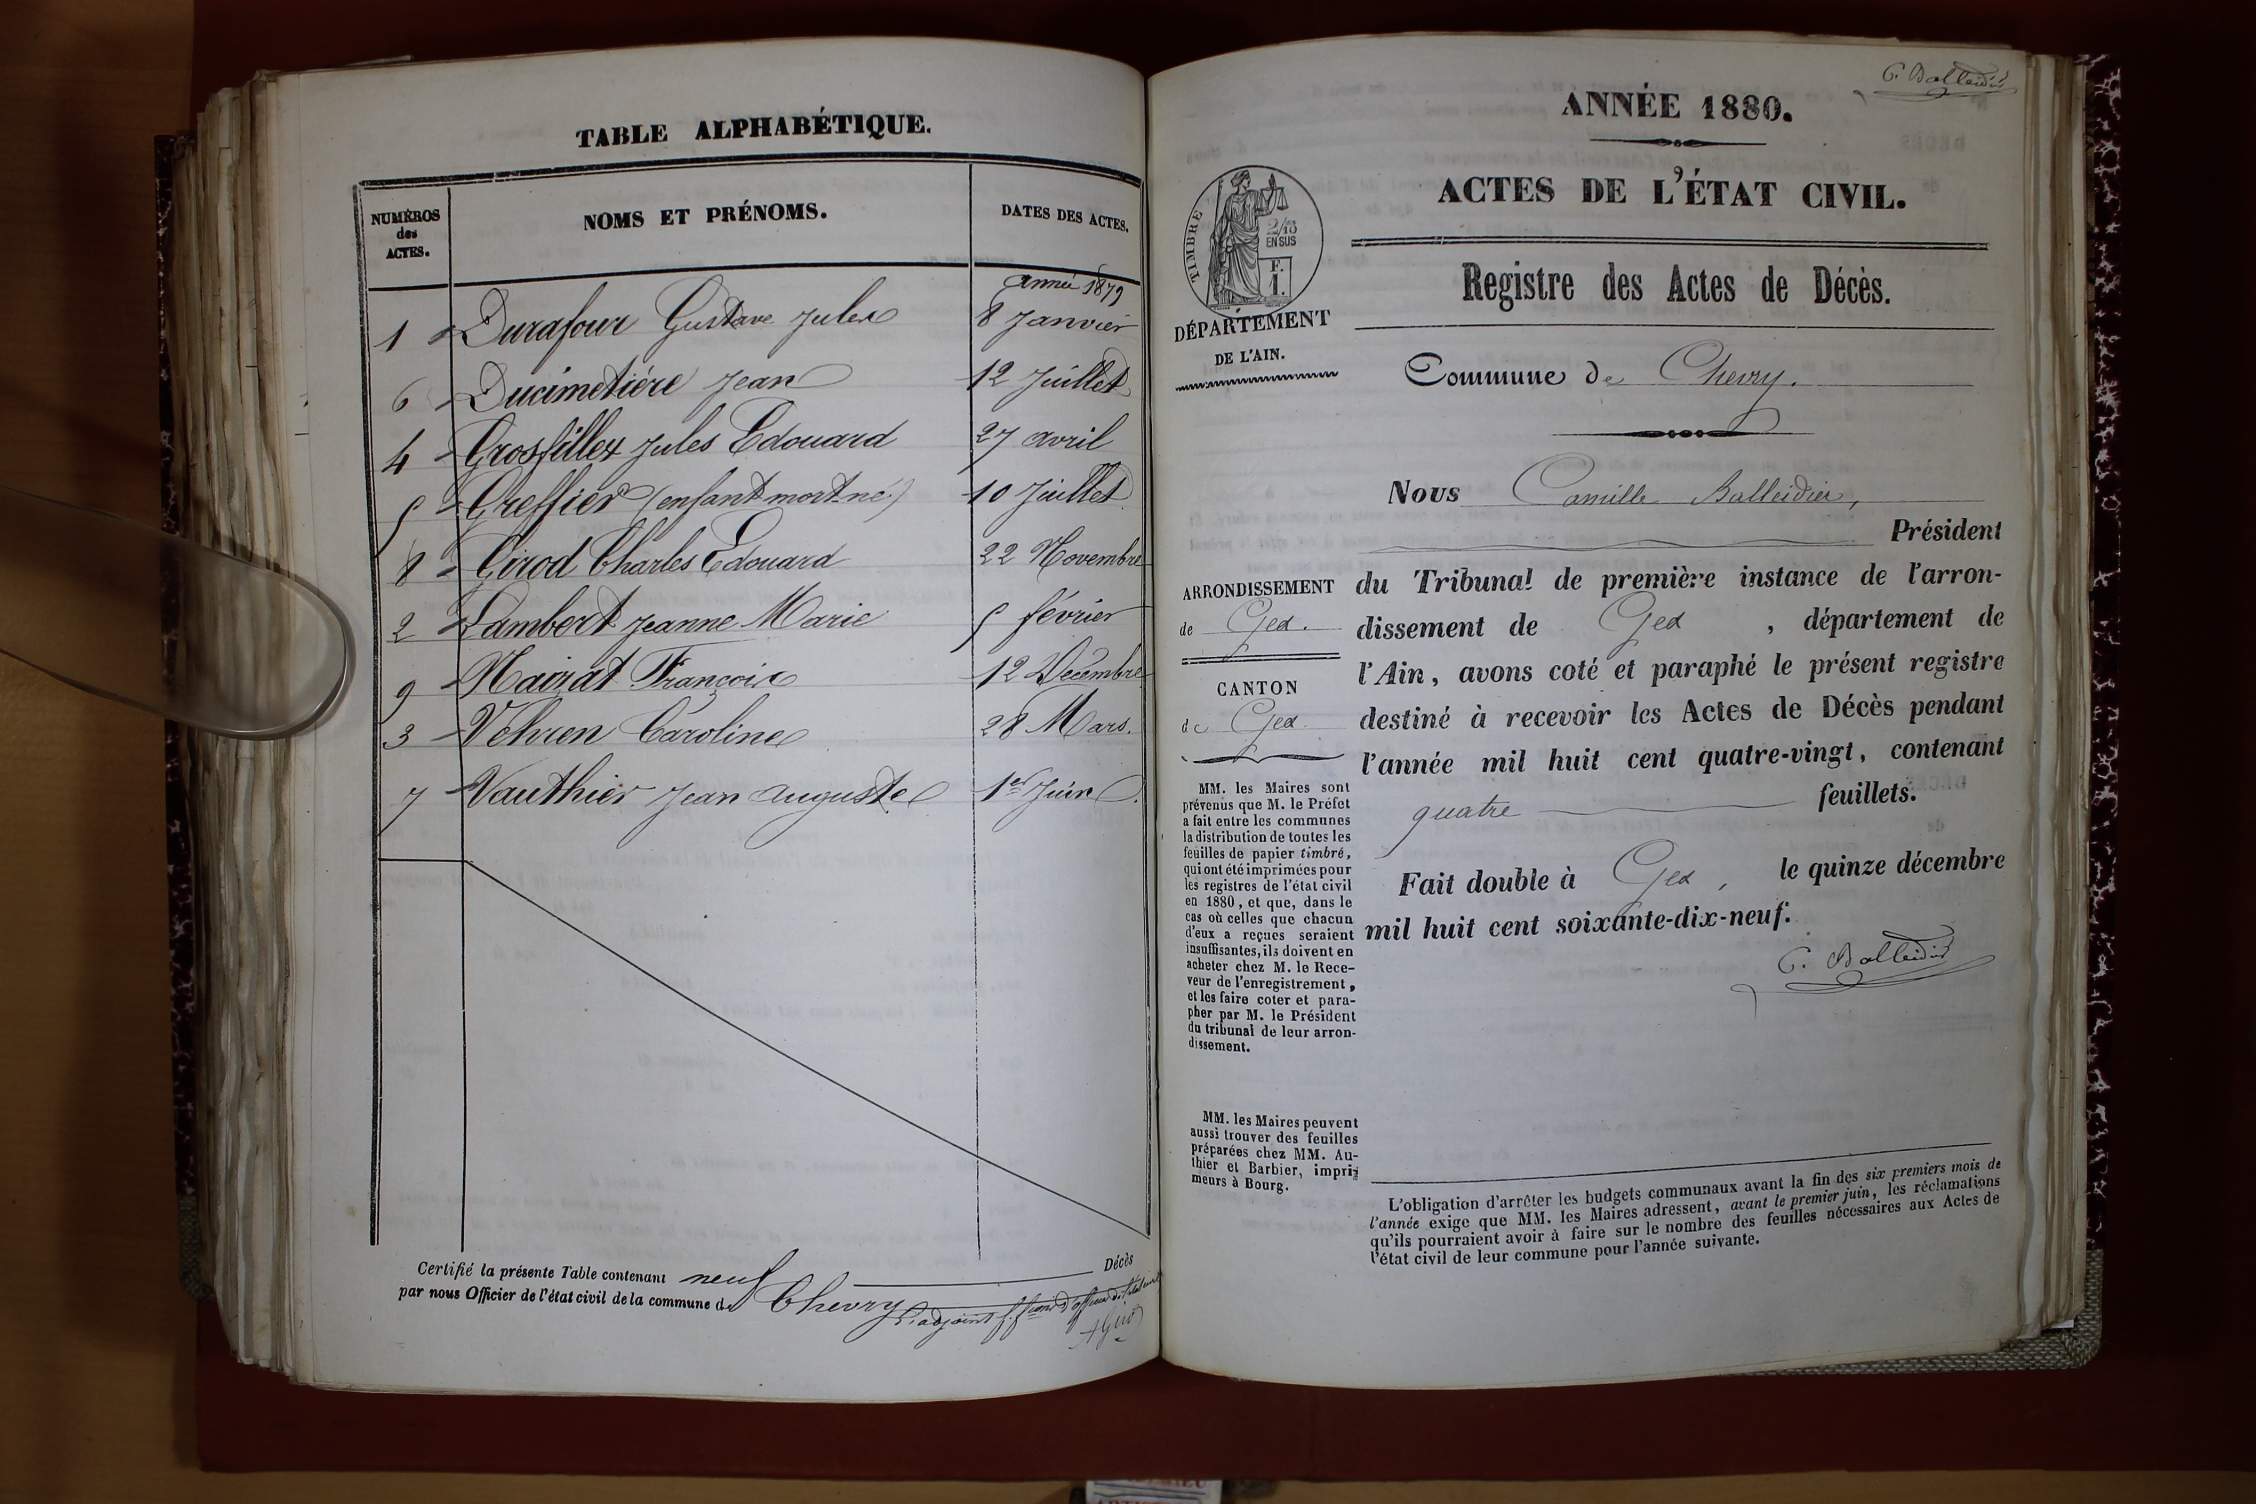 TABLE ALPHABÉTIQUE.
NUMÉROS des ACTES.
NOMS ET PRÉNOMS.
DATES DES ACTES.
année 1879
1 Durafour Gustave Jules 8 Janvier
6 Ducimetiére Jean 12 Juillet
4 Grosfillex Jules Edouard 27 avril
5 Greffier (enfant mort né) 10 Juillet
8 Girod Charles Edouard 22 Novembre
2 Lambert Jeanne Marie 5 février
9 Mairat François 12 Décembre
3 Vehren Caroline 28 Mars.
7 Vauthier Jean Auguste 1er Juin
Certifié la présente Table contenant neuf Décès
par nous Officier de l'état civil de la commune de Chevry
C. Balleidier
ANNÉE 1880.
ACTES DE L'ÉTAT CIVIL.
TIMBRE
2/10
EN SUS
F.
1.
DÉPARTEMENT
DE L'AIN.
Registre des Actes de Décès.
Commune de Chevry.
Nous Camille Balleidier,
Président
du Tribunal de première instance de l'arron-
dissement de Gex, département de
l'Ain, avons coté et paraphé le présent registre
destiné à recevoir les Actes de Décès pendant
l'année mil huit cent quatre-vingt, contenant
quatre feuillets.
Fait double à Gex, le quinze décembre
mil huit cent soixante-dix-neuf.
C. Balleidier
ARRONDISSEMENT
de Gex.
CANTON
de Gex.
MM. les Maires sont
prévenus que M. le Préfet
a fait entre les communes
la distribution de toutes les
feuilles de papier timbré,
qui ont été imprimées pour
les registres de l'état civil
en 1880, et que, dans le
cas où celles que chacun
d'eux a reçues seraient
insuffisantes, ils doivent en
acheter chez M. le Rece-
veur de l'enregistrement,
et les faire coter et para-
pher par M. le Président
du tribunal de leur arron-
dissement.
MM. les Maires peuvent
aussi trouver des feuilles
préparées chez MM. Au-
thier et Barbier, impri-
meurs à Bourg.
L'obligation d'arrêter les budgets communaux avant la fin des six premiers mois de
l'année exige que MM. les Maires adressent, avant le premier juin, les réclamations
qu'ils pourraient avoir à faire sur le nombre des feuilles nécessaires aux Actes de
l'état civil de leur commune pour l'année suivante.